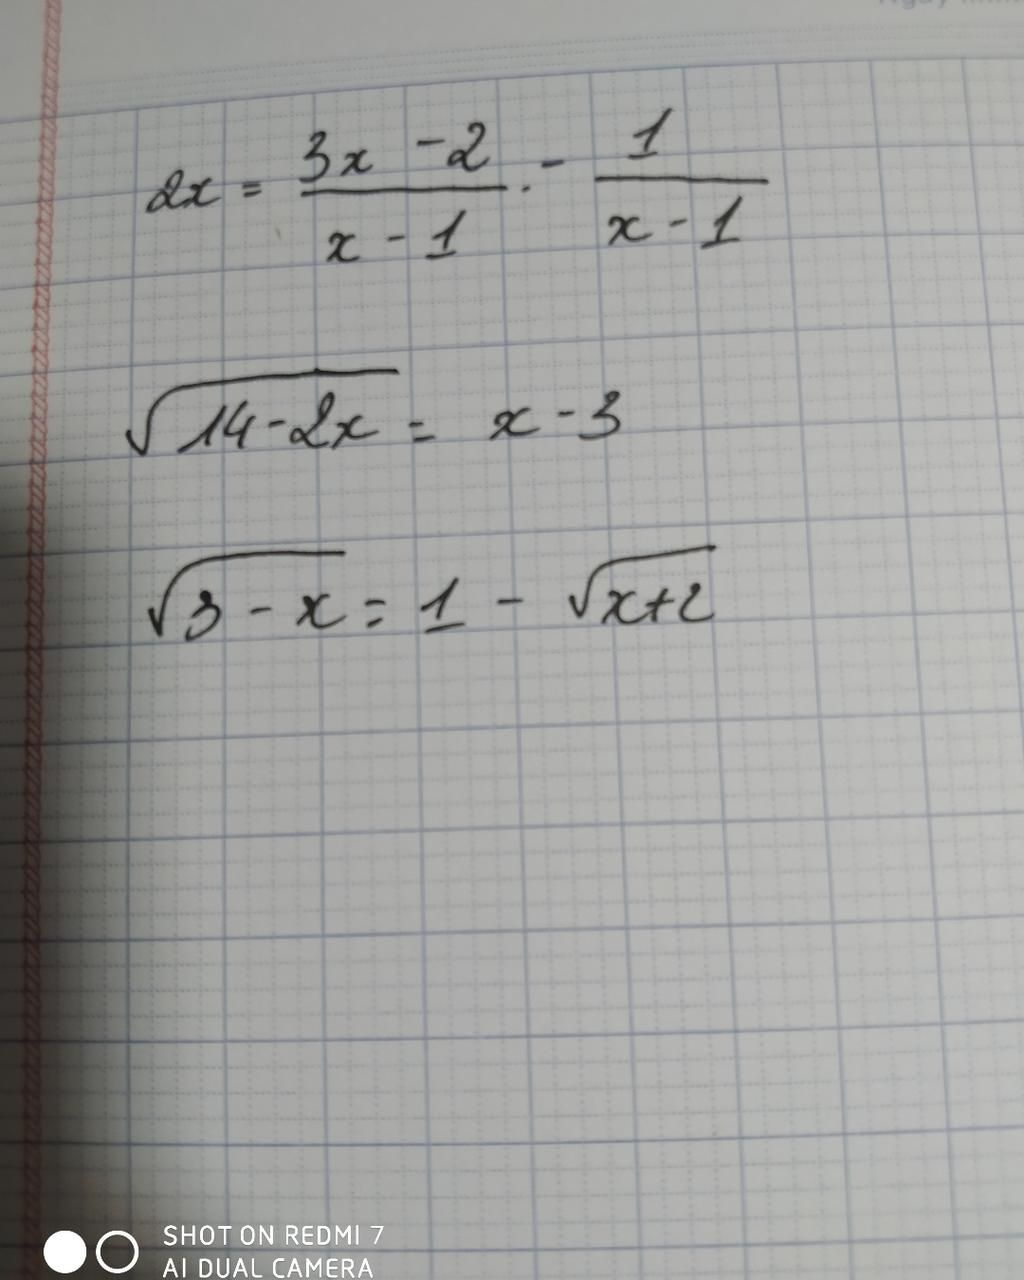 2x = \frac{3x - 2}{x - 1} . - \frac{1}{x - 1}
\sqrt{14 - 2x} = x - 3
\sqrt{3 - x} = 1 - \sqrt{x + 2}
SHOT ON REDMI 7
AI DUAL CAMERA